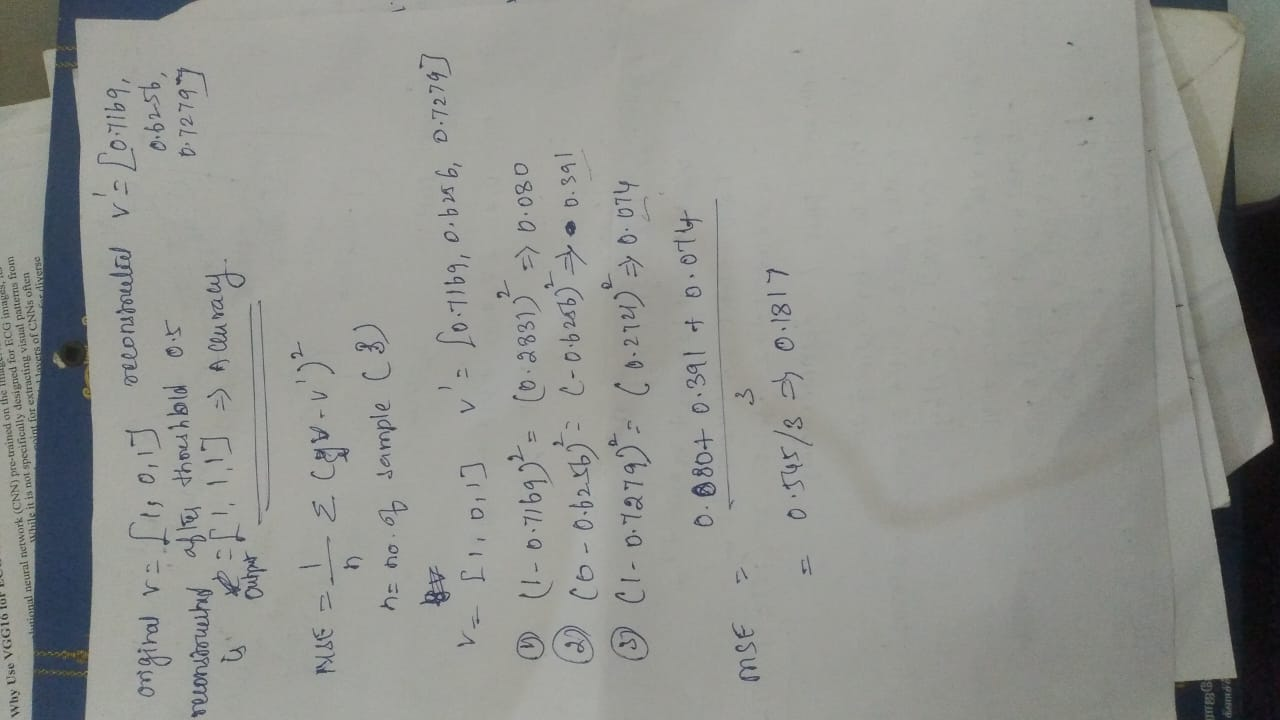 Why Use VGG16 for EC
ional neural network (CNN) pre-trained on the image
designed for ECG images,
While it is not specifically
point for extracting visual patterns from
layers of CNNs often
for diverse
original v = [1, 0, 1] reconstructed v' = [0.7169,
0.6256,
0.7279]
reconstructed after threshold 0.5
is = [1, 1, 1] => Accuracy.
output
MSE = 1/n Σ (v - v')²
n = no. of sample (3)
v = [1, 0, 1] v' = [0.7169, 0.6256, 0.7279]
① (1 - 0.7169)² = (0.2831)² => 0.080
② (0 - 0.6256)² = (-0.6256)² => 0.391
③ (1 - 0.7279)² = (0.2721)² => 0.074
MSE = 0.080 + 0.391 + 0.074
3
= 0.545/3 => 0.1817